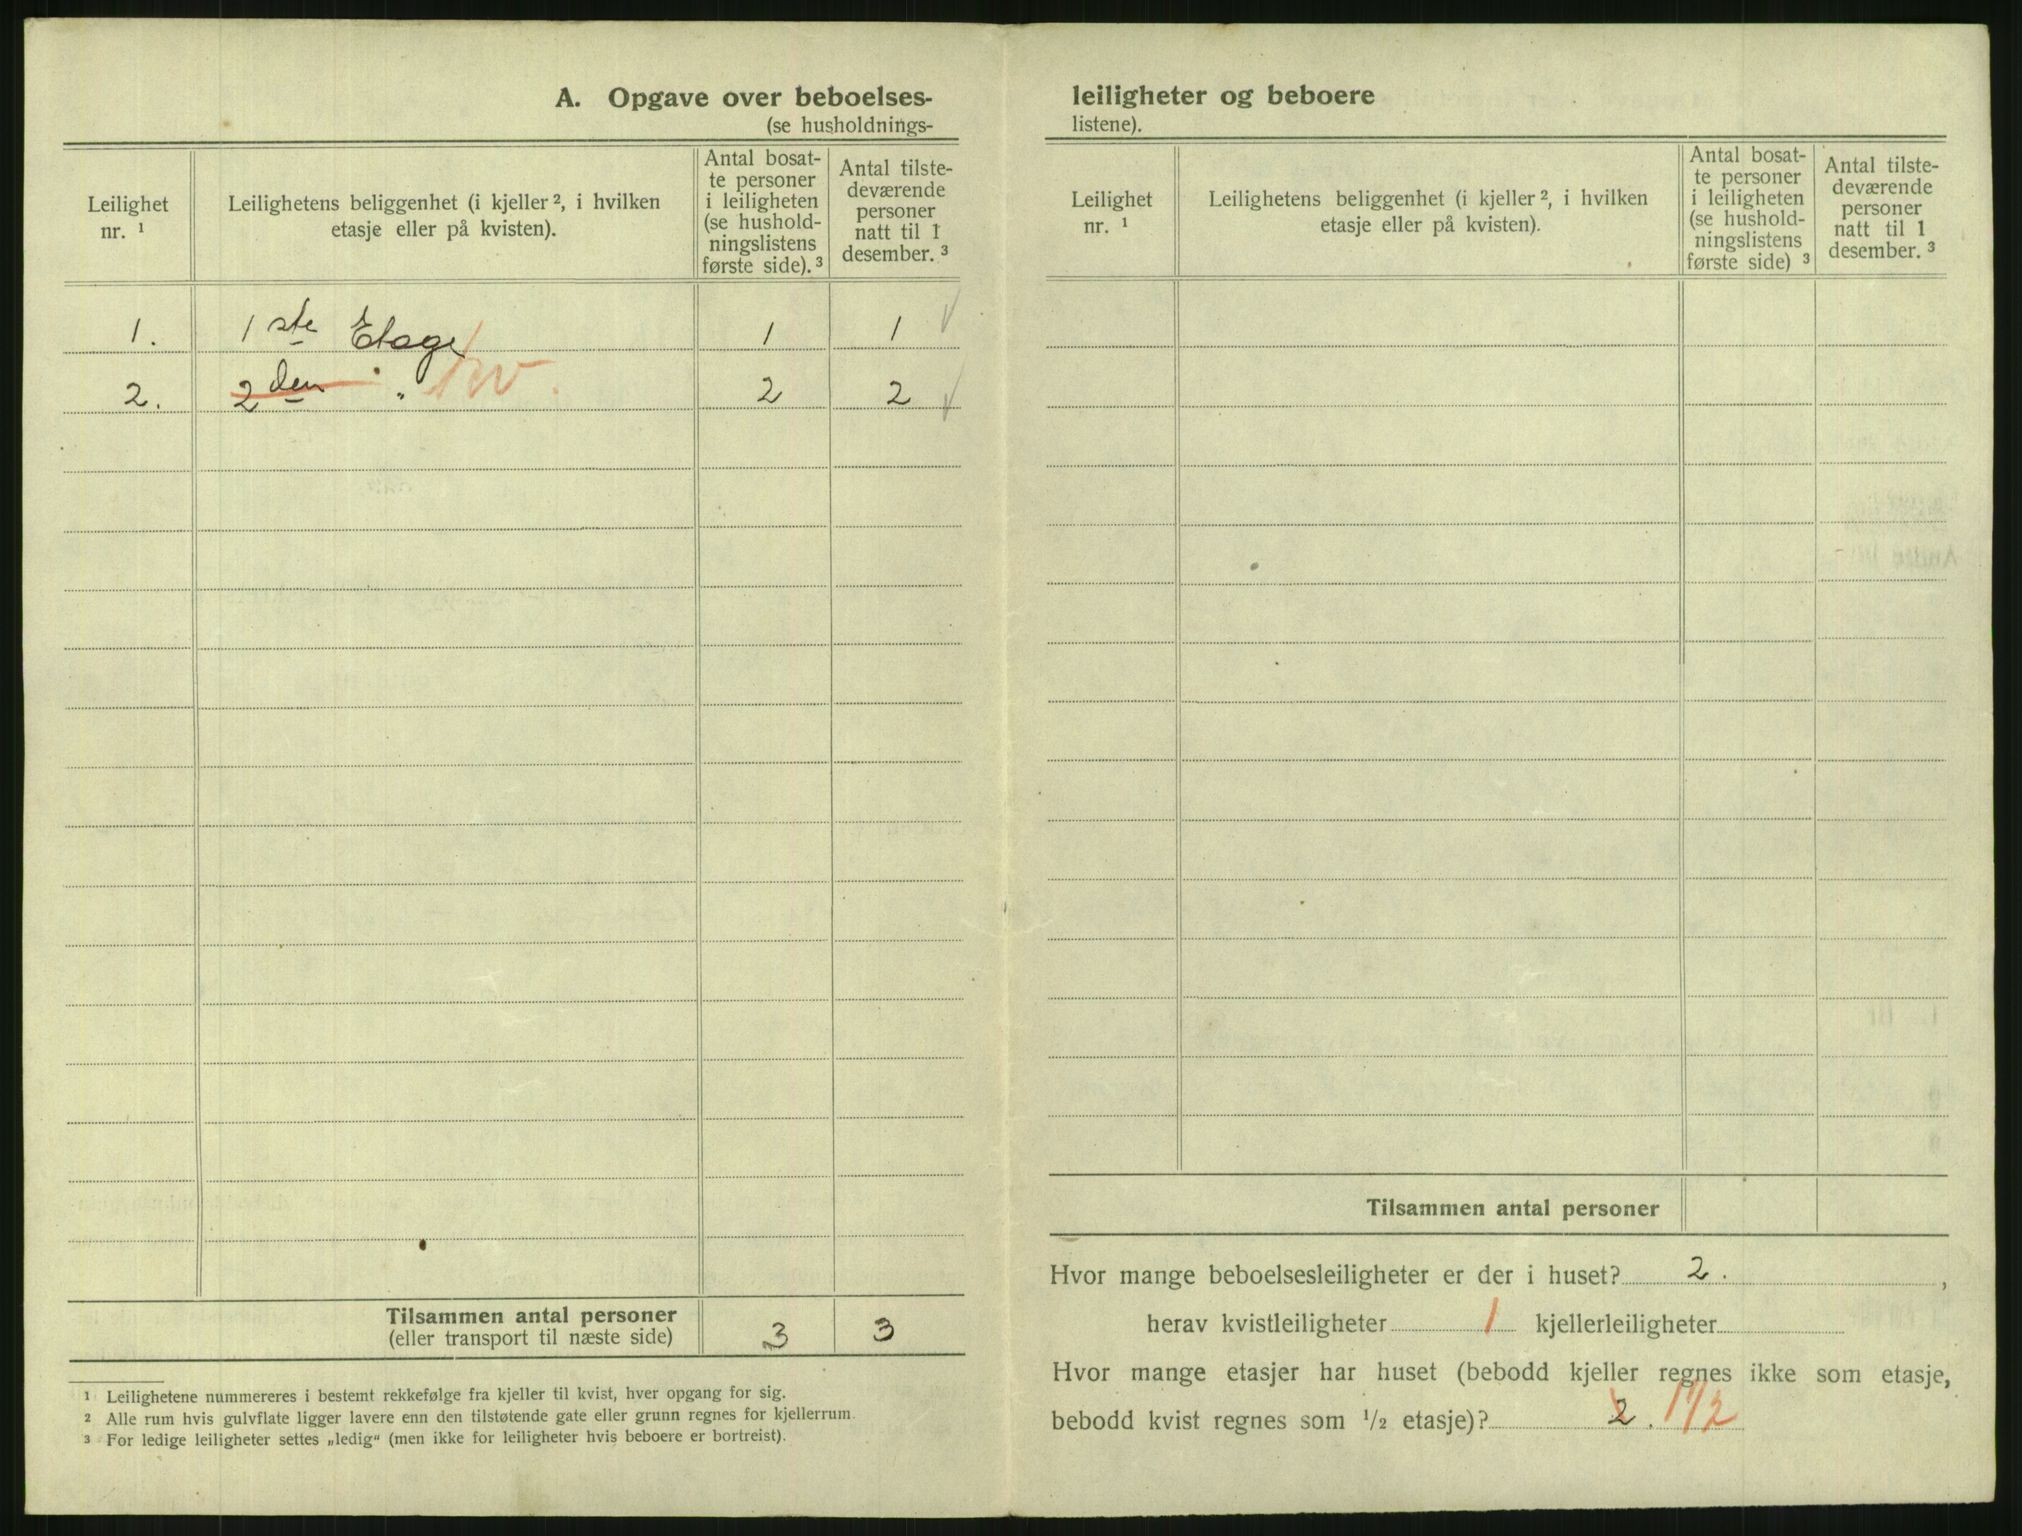 A. Opgave over beboelses-
(se husholdnings-
Leilighet
nr. ¹
Leilighetens beliggenhet (i kjeller ², i hvilken
etasje eller på kvisten).
Antal bosat-
te personer
i leiligheten
(se hushold-
ningslistens
første side). ³
Antal tilste-
deværende
personer
natt til 1
desember. ³
1. 1 ste Etage 1 1
2. 2 den „ kv. 2 2
Tilsammen antal personer
(eller transport til næste side) 3 3
¹ Leilighetene nummereres i bestemt rekkefølge fra kjeller til kvist, hver opgang for sig.
² Alle rum hvis gulvflate ligger lavere enn den tilstøtende gate eller grunn regnes for kjellerrum.
³ For ledige leiligheter settes „ledig“ (men ikke for leiligheter hvis beboere er bortreist).
leiligheter og beboere
listene).
Leilighet
nr. ¹
Leilighetens beliggenhet (i kjeller ², i hvilken
etasje eller på kvisten).
Antal bosat-
te personer
i leiligheten
(se hushold-
ningslistens
første side) ³
Antal tilste-
deværende
personer
natt til 1
desember. ³
Tilsammen antal personer
Hvor mange beboelsesleiligheter er der i huset? 2. ,
herav kvistleiligheter 1 kjellerleiligheter
Hvor mange etasjer har huset (bebodd kjeller regnes ikke som etasje,
bebodd kvist regnes som ¹/₂ etasje)? 2. 1 1/2